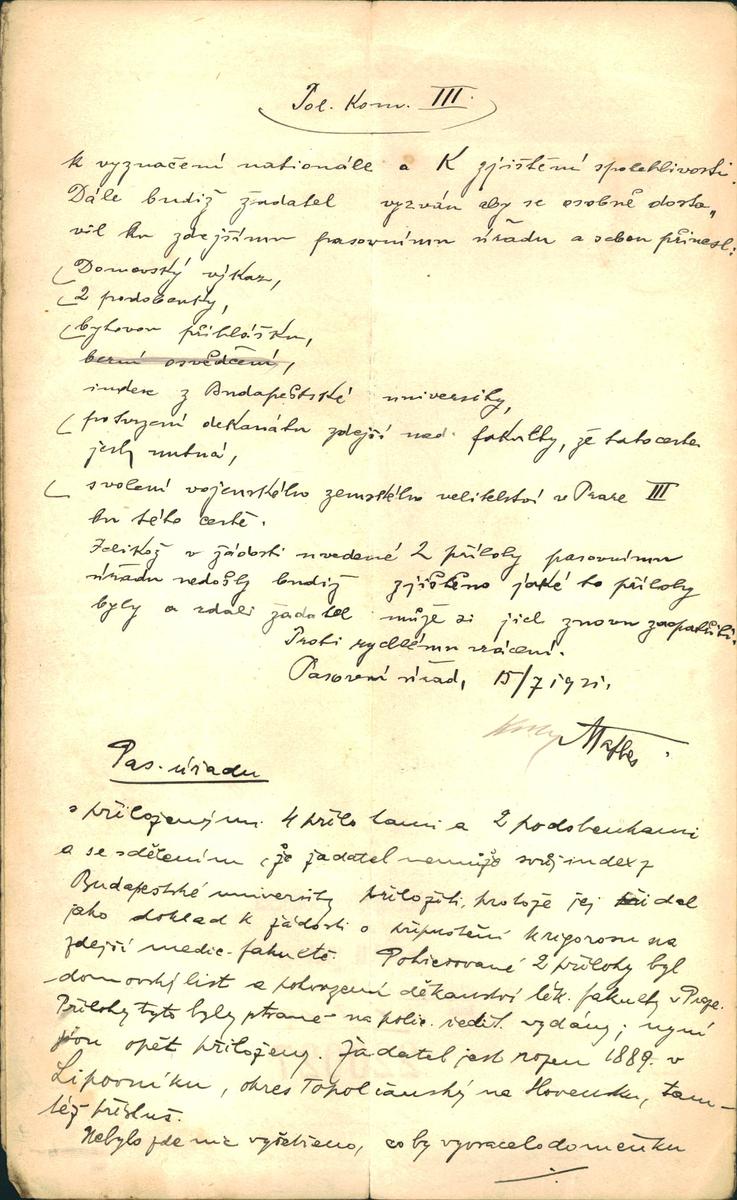 Pol. Kom. III.
k vyznačení nationále a K zjištění spolehlivosti.
Dále budiž žadatel vyzván aby se osobně dosta„
vil ku zdejšímu pasovnímu úřadu a sebou přinesl:
Domovský výkaz,
2 podobenky,
bytovou přihlášku,
berní osvědčení,
index z Budapeštské university,
potvrzení dekanátu zdejší med. fakulty, že tato cesta
jest nutná,
svolení vojenského zemského velitelství v Praze III
ku této cestě.
Jelikož v žádosti uvedené 2 přílohy pasovnímu
úřadu nedošly budiž zjištěno jaké to přílohy
byly a zdali žadatel může si jich znovu zaopatřiti.
Prosí rychlému vrácení.
Pasovní úřad, 15/7 1921.
Pas. úřadu
s přiloženými 4 přílohami a 2 podobenkami
a se sdělením, že žadatel nemůže svůj index z
Budapestské university přiložiti, protože jej přidal
jako doklad k žádosti o připuštění k rigorosu na
zdejší medic. fakultě. Pohřešované 2 přílohy byl
domovský list a potvrzení děkanství lék. fakulty v Praze.
Přílohy tyto byly straně na polic. ředit. vydány; nyní
jsou opět přiloženy. Žadatel jest rozen 1889 v
Lipovníku, okres Topolčanský na Slovensku, tam-
též přísluš.
Nebylo zde nic vyšetřeno, co by vyvracelo doměnku